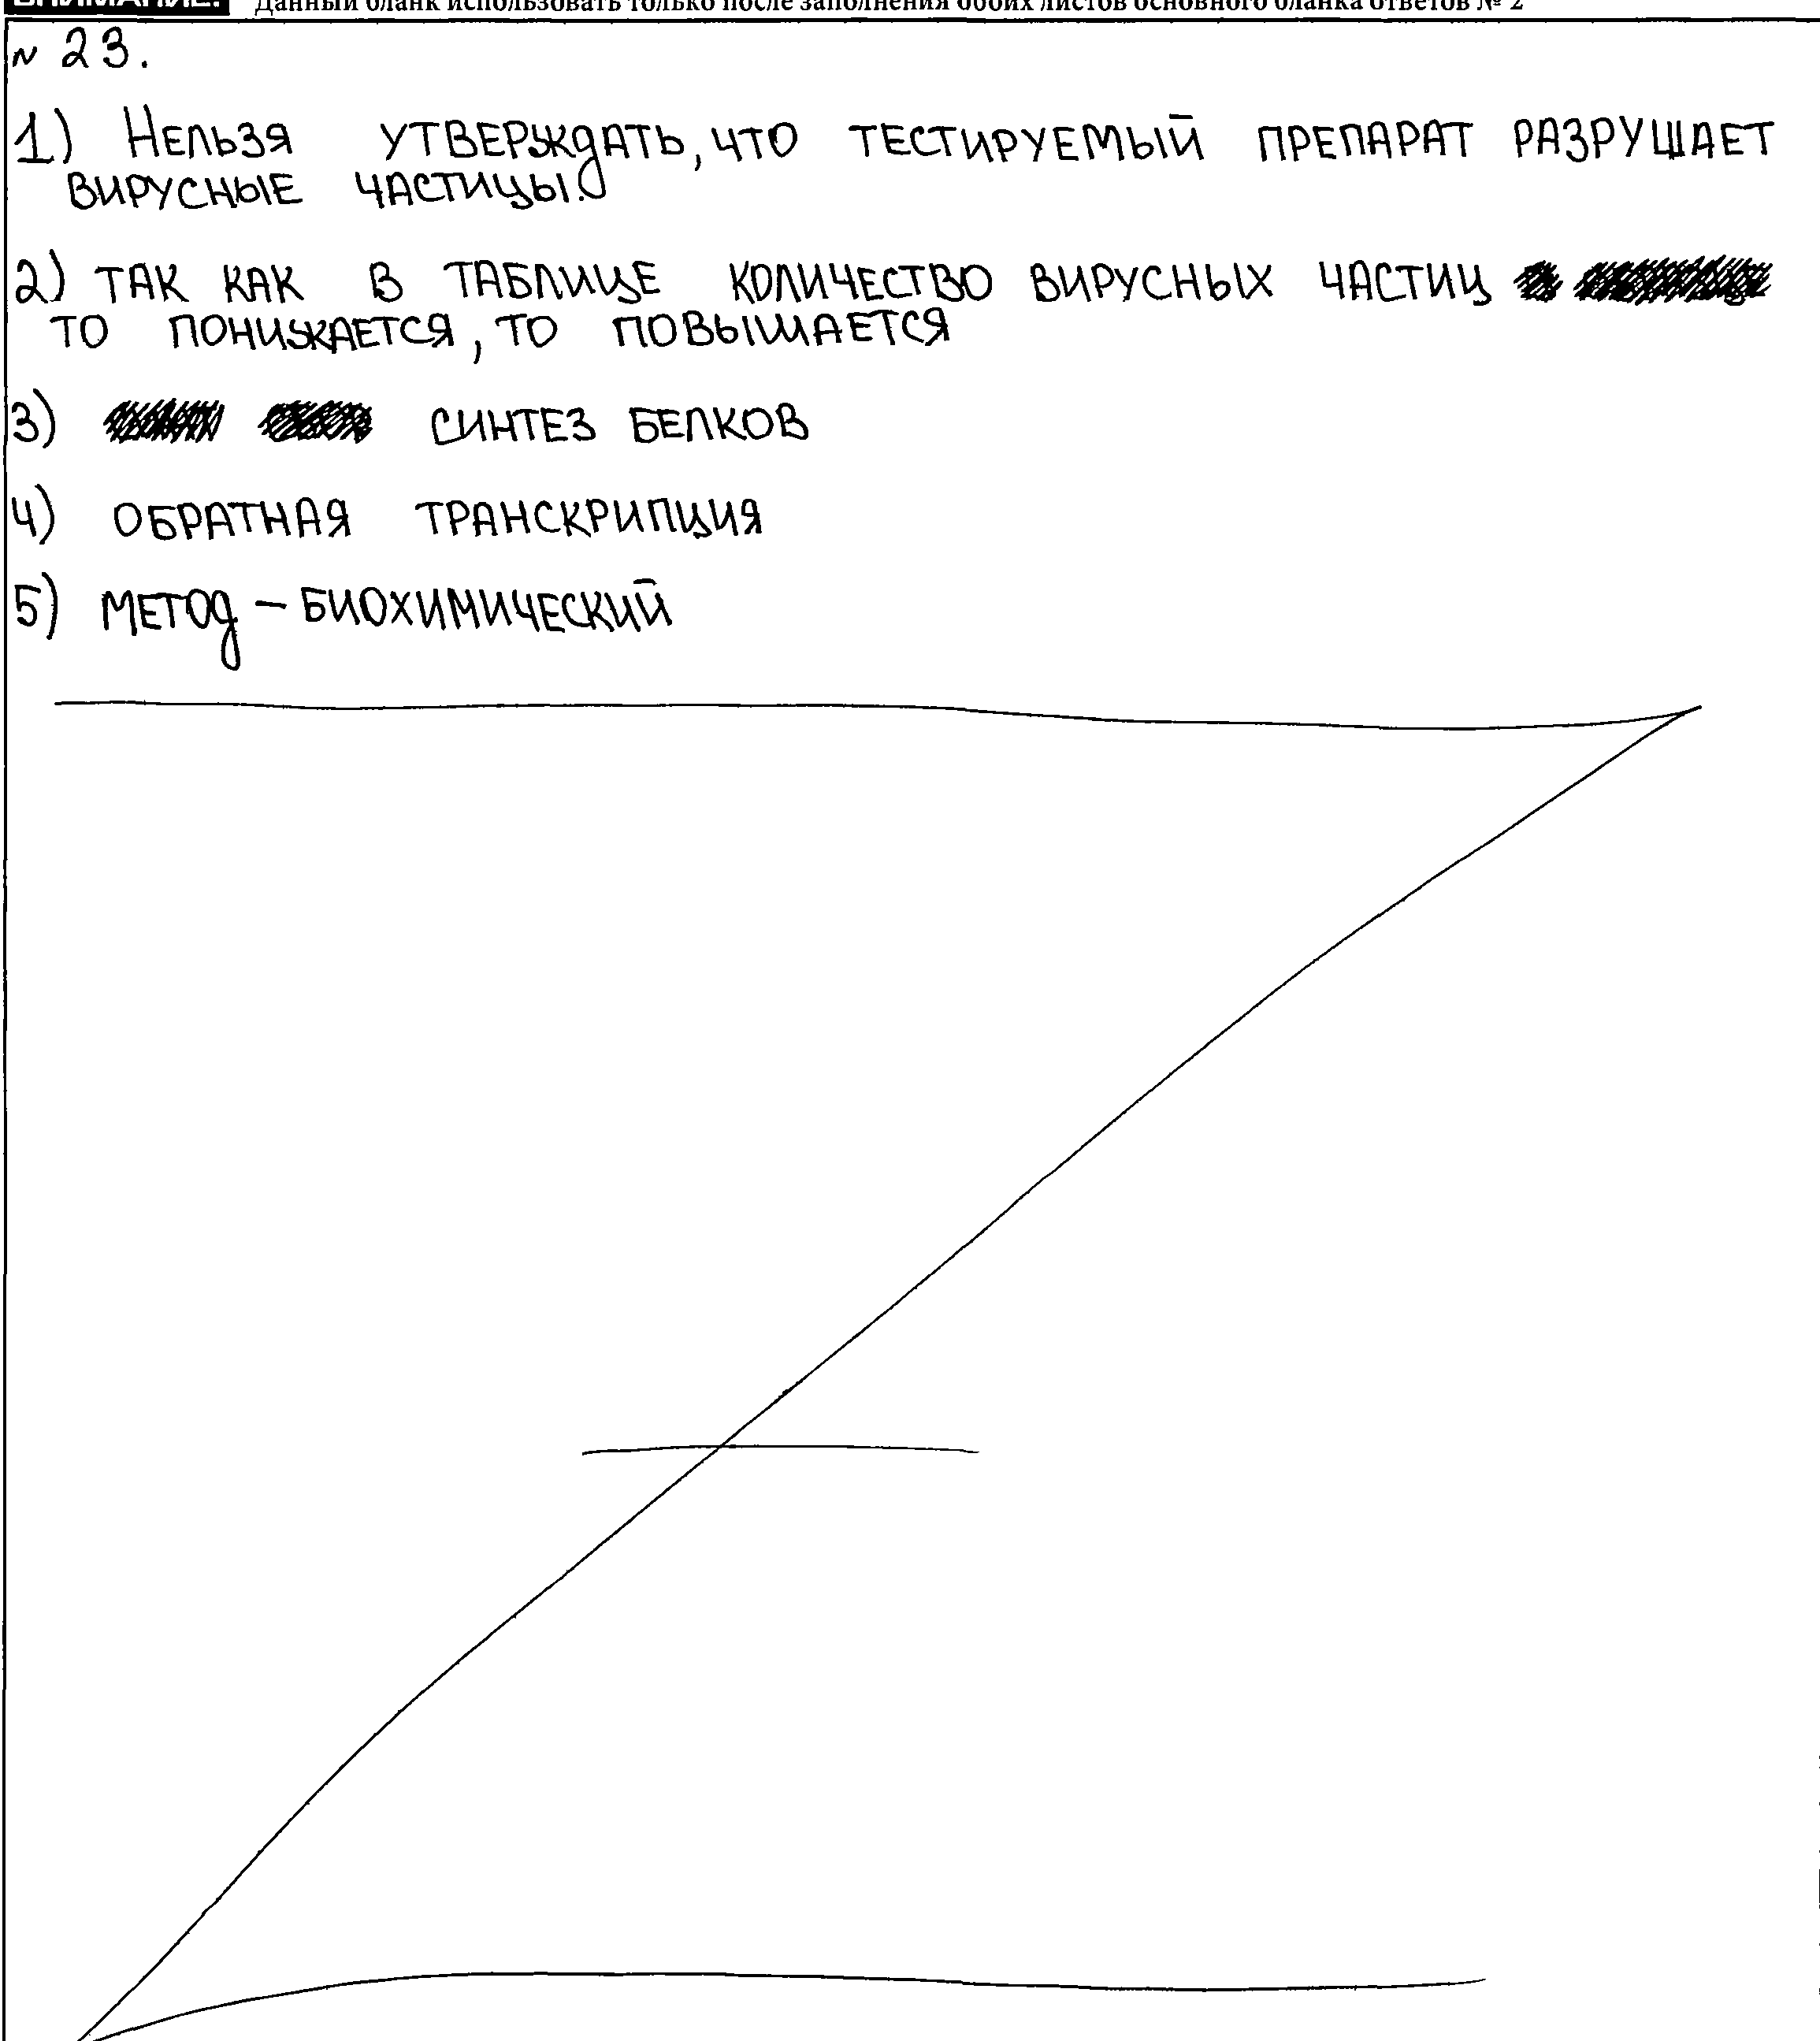 ВНИМАНИЕ! Данный бланк использовать только после заполнения обоих листов основного бланка ответов № 2
N 23.
1) Нельзя утверждать, что тестируемый препарат разрушает
вирусные частицы.
2) так как в таблице количество вирусных частиц
то понижается, то повышается
3) синтез белков
4) обратная транскрипция
5) метод – биохимический